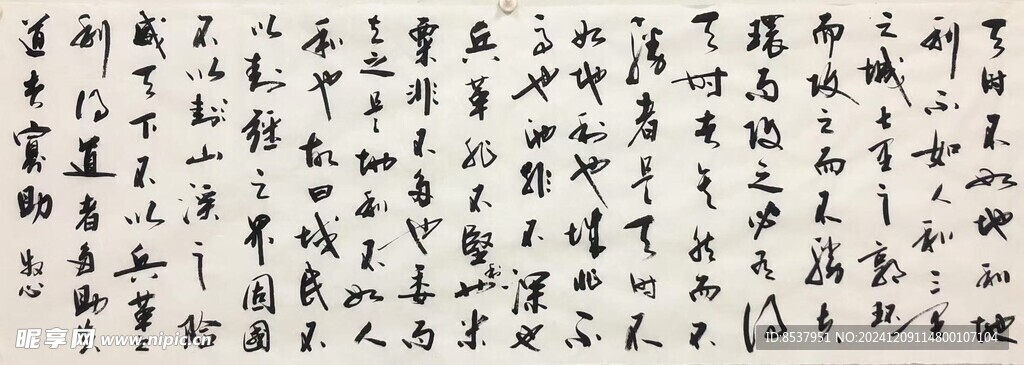 天时不如地利地
利不如人和三里
之城七里之郭环
而攻之而不勝夫
環而攻之必有得
天时者矣然而不
勝者是天时不
如地利也城非不
高也池非不深也
兵革非不堅利也米
粟非不多也委而
去之是地利不如人
和也故曰域民不
以封疆之界固國
不以封山溪之險
威天下不以兵革之
利得道者多助失
道者寡助 牧心
昵享网 www.nipic.cn
ID:8537951 NO:20241209114800107104